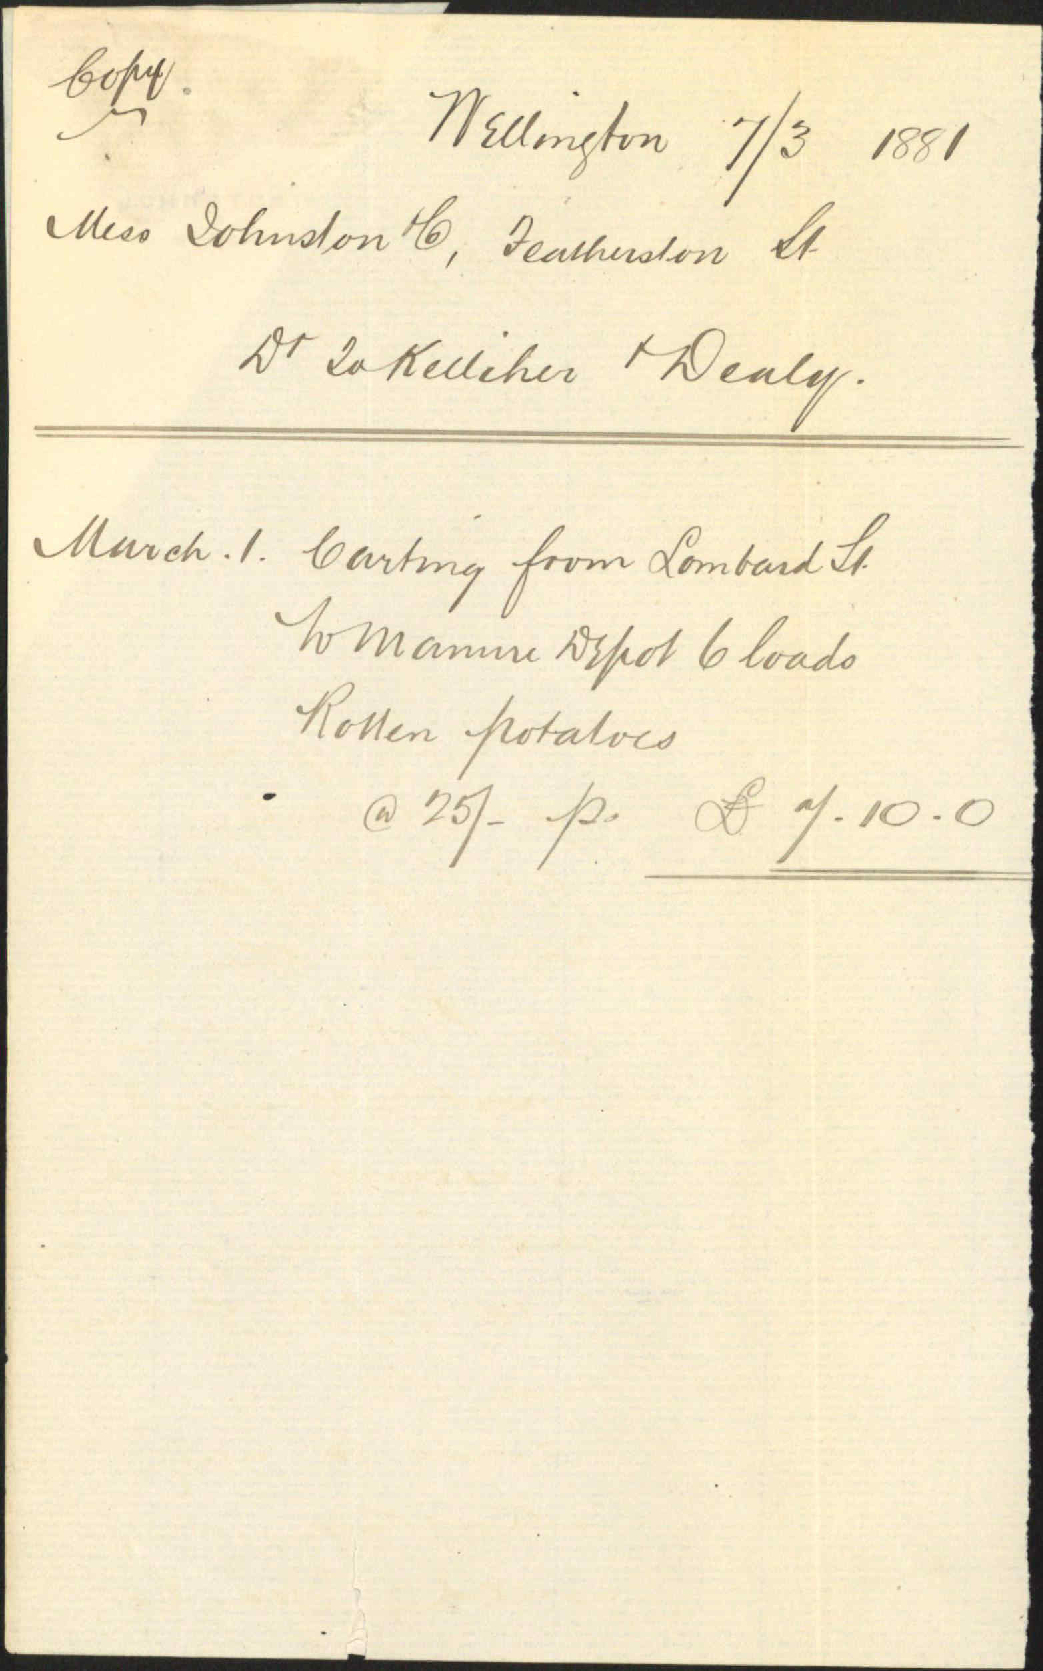 Copy.
Wellington 7/3 1881
Mess Johnston & Co, Featherston St
Dr To Kelliher & Dealy.
March. 1. Carting from Lombard St.
to Manure Depot 6 loads
Rotten potatoes
@ 25/- p. £ 7.10.0